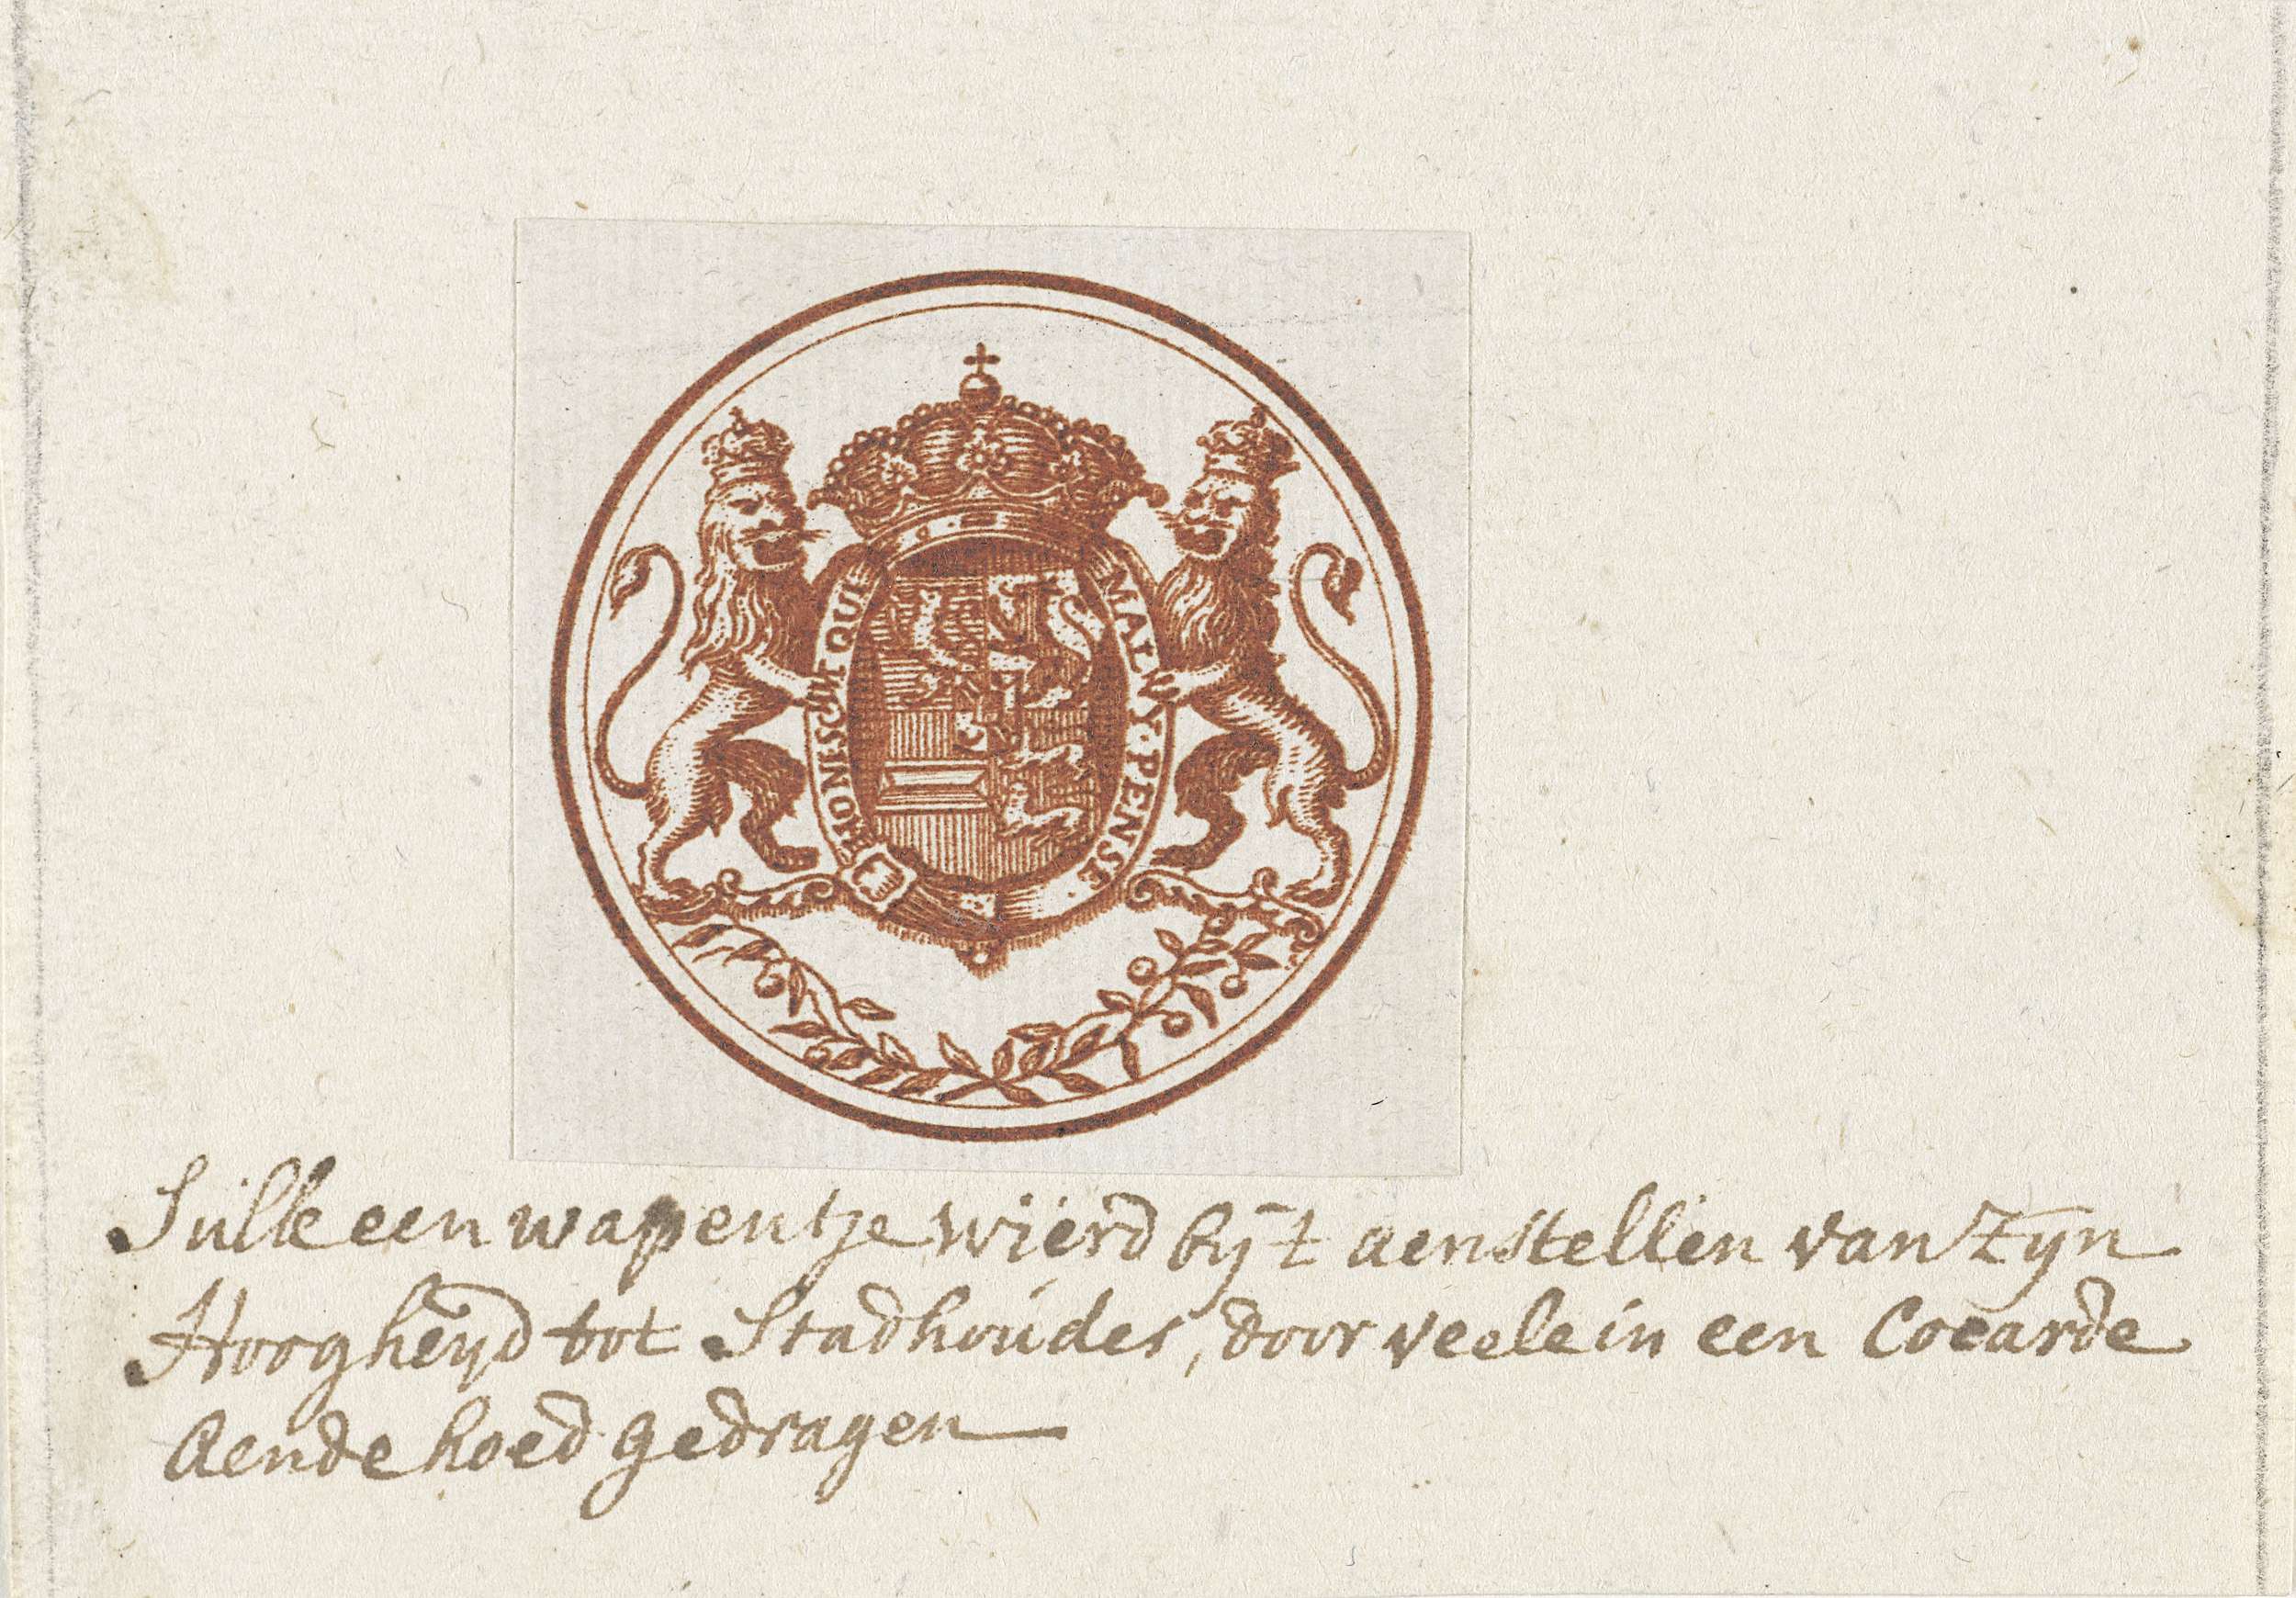 HONI SOIT QUI MAL Y PENSE
Sulk een wapentje wierd bij 't aenstellen van Zyn
Hoogheyd tot Stadhouder, door veele in een Cocarde
Aende hoed gedragen